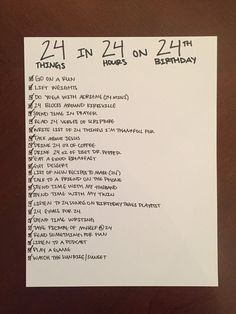 24 IN 24 ON 24TH
THINGS HOURS BIRTHDAY
GO ON A RUN
LIFT WEIGHTS
DO YOGA WITH ADRIENE (24 MINS)
24 BLOCKS AROUND KIRKSVILLE
SPEND TIME IN PRAYER
READ 24 VERSES OF SCRIPTURE
WRITE LIST OF 24 THINGS I'M THANKFUL FOR
TALK ABOUT JESUS
DRINK 24 OZ OF COFFEE
DRINK 24 OZ OF DIET DR. PEPPER
EAT A GOOD BREAKFAST
EAT DESSERT
LIST OF NEW RECIPES TO MAKE (24)
TALK TO A FRIEND ON THE PHONE
SPEND TIME WITH MY HUSBAND
SPEND TIME WITH MY TWIN
LISTEN TO 24 SONGS ON BIRTHDAY TUNES PLAYLIST
24 GOALS FOR 24
SPEND TIME WRITING
TAKE PICTURE OF MYSELF @ 24
READ SOMETHING FOR FUN
LISTEN TO A PODCAST
PLAY A GAME
WATCH THE SUNRISE/SUNSET